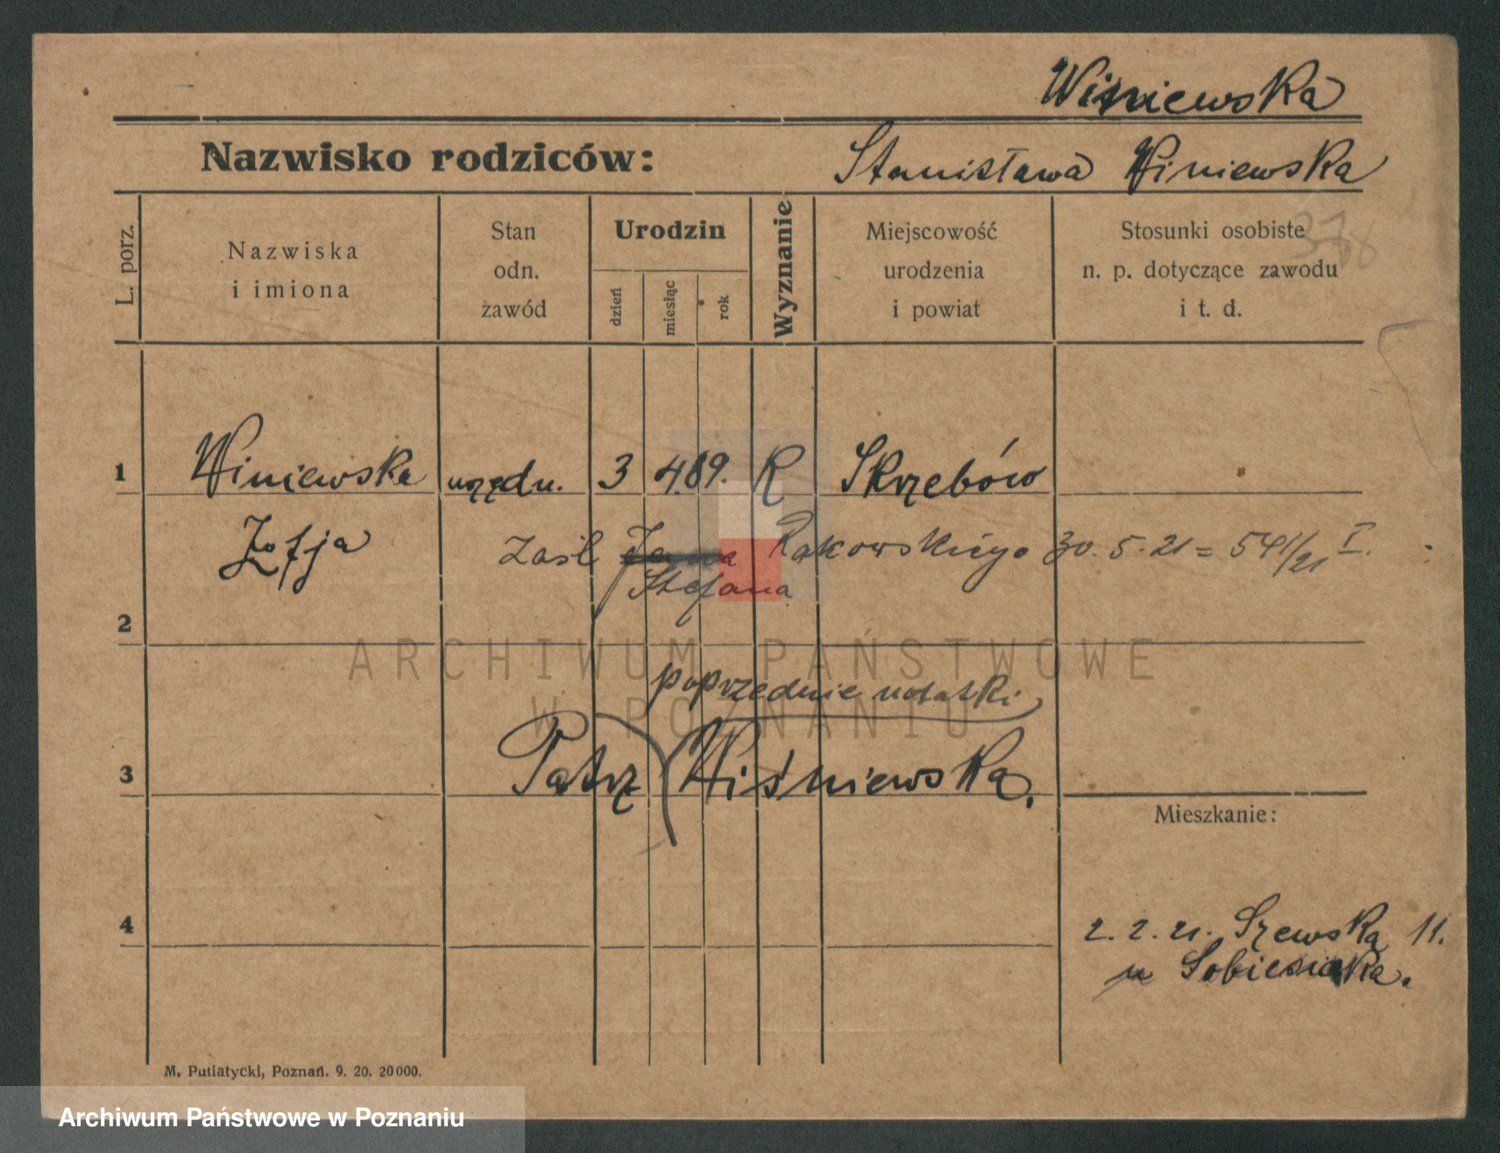 Wiśniewska
Nazwisko rodziców: Stanisława Winiewska
L. porz.
Nazwiska
i imiona
Stan
odn.
zawód
Urodzin
dzień
miesiąc
rok
Wyznanie
Miejscowość
urodzenia
i powiat
Stosunki osobiste
n. p. dotyczące zawodu
i t. d.
378
1 Winiewska urzędn. 3 4.89. R Skrzebów
Zofja zaśl Jana Rakowskiego 30. 5. 21 = 541/21 I.
Stefana
2
poprzednie notatki
3 Patrz Wiśniewska.
Mieszkanie:
4 2. 2. 21. Szewska 11.
u Sobiesiaka.
M. Putiatycki, Poznań. 9. 20. 20000.
ARCHIWUM PAŃSTWOWE
W POZNANIU
Archiwum Państwowe w Poznaniu